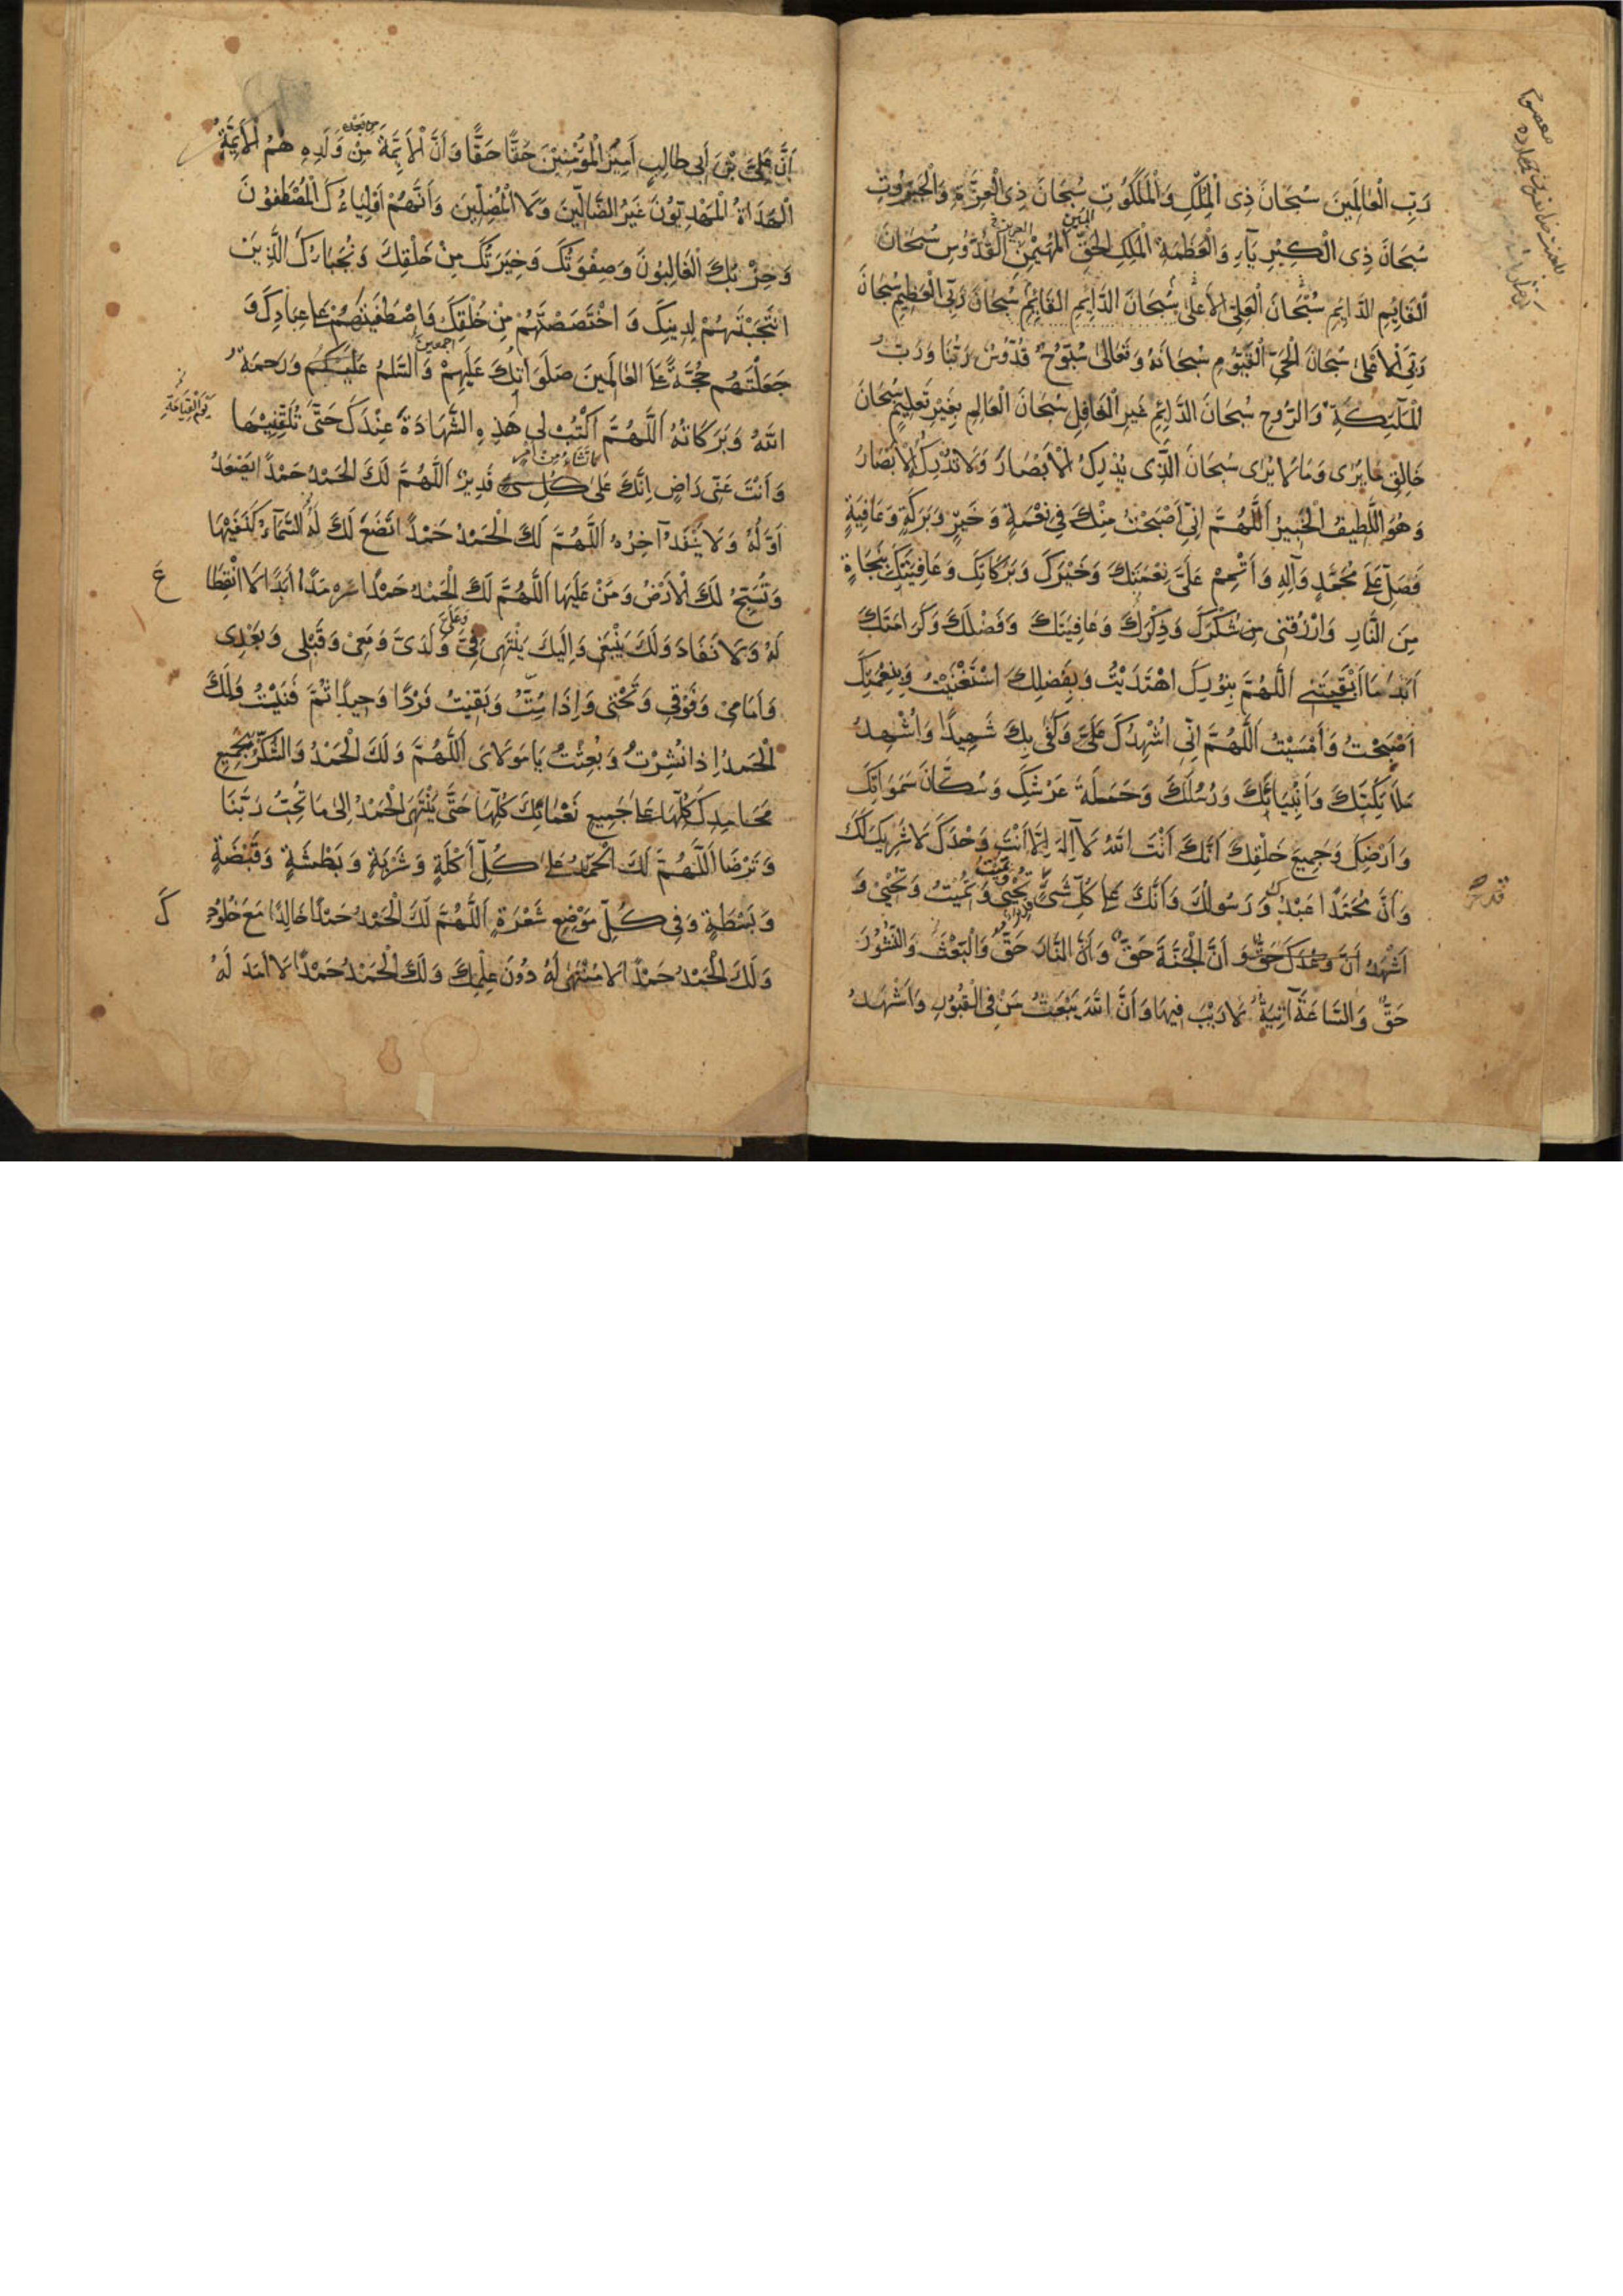 رَبِّ الْعٰالَمِينَ سُبْحَانَ ذِی الْمُلْكِ وَالْمَلَكُوتِ سُبْحَانَ ذِی الْعِزَّةِ وَالْجَبَرُوتِ
سُبْحَانَ ذِی الْكِبْرِيَآءِ وَالْعَظَمَةِ الْمَلِكِ الْحَقِّ الْمُبِينِ الْمُهَيْمِنِ الْقُدُّوسِ سُبْحَانَ
الْقَايِمِ الدَّايِمِ سُبْحَانَ الْعَلِىِّ الْأَعْلىٰ سُبْحَانَ الدَّايِمِ الْقَايِمِ سُبْحَانَ رَبِّىَ الْعَظِيمِ سُبْحَانَ
رَبِّىَ الْأَعْلىٰ سُبْحَانَ الْحَىِّ الْقَيُّومِ سُبْحَانَهُ وَتَعَالىٰ سُبُّوحٌ قُدُّوسٌ رَبُّنَا وَرَبُّ
الْمَلٰٓئِكَةِ وَالرُّوحِ سُبْحَانَ الدَّائِمِ غَيْرِ الْغَافِلِ سُبْحَانَ الْعَالِمِ بِغَيْرِ تَعْلِيمٍ سُبْحَانَ
خَالِقِ مَا يُرٰى وَمَا لَا يُرٰى سُبْحَانَ الَّذِى يُدْرِكُ الْأَبْصَارَ وَلَا تُدْرِكُهُ الْأَبْصَارُ
وَهُوَ اللَّطِيفُ الْخَبِيرُ اَللّٰهُمَّ اِنِّى أَصْبَحْتُ مِنْكَ فِى نِعْمَةٍ وَخَيْرٍ وَبَرَكَةٍ وَعَافِيَةٍ
فَصَلِّ عَلىٰ مُحَمَّدٍ وَآلِهِ وَأَتْمِمْ عَلَىَّ نِعْمَتَكَ وَخَيْرَكَ وَبَرَكَاتِكَ وَعَافِيَتَكَ بِنَجَاةٍ
مِنَ النَّارِ وَارْزُقْنِى شُكْرَكَ وَذِكْرَكَ وَعَافِيَتَكَ وَفَضْلَكَ وَكَرَامَتَكَ
اَبَدًا مَا أَبْقَيْتَنِى اَللّٰهُمَّ بِنُورِكَ اهْتَدَيْتُ وَبِفَضْلِكَ اسْتَغْنَيْتُ وَبِنِعْمَتِكَ
أَصْبَحْتُ وَأَمْسَيْتُ اَللّٰهُمَّ اِنِّى اُشْهِدُكَ وَكَفٰى بِكَ شَهِيدًا وَاُشْهِدُ
مَلَائِكَتَكَ وَأَنْبِيَائَكَ وَرُسُلَكَ وَحَمَلَةَ عَرْشِكَ وَسُكَّانَ سَمٰوَاتِكَ
وَأَرْضِكَ وَجَمِيعَ خَلْقِكَ اَنَّكَ اَنْتَ اللهُ لَا اِلٰهَ اِلَّا أَنْتَ وَحْدَكَ لَا شَرِيكَ لَكَ
وَأَنَّ مُحَمَّدًا عَبْدُكَ وَرَسُولُكَ وَأَنَّكَ عَلىٰ كُلِّ شَىْءٍ قدير تُحْيِى وَتُمِيتُ وَتُمِيتُ وَتُحْيِى وَ
اَشْهَدُ اَنَّ وَعْدَكَ حَقٌّ وَ أَنَّ الْجَنَّةَ حَقٌّ وَأَنَّ النَّارَ حَقٌّ وَالْبَعْثَ وَالنُّشُورَ
حَقٌّ وَالسَّاعَةَ آتِيَةٌ لَا رَيْبَ فِيهَا وَأَنَّ اللهَ يَبْعَثُ مَنْ فِى الْقُبُورِ وَاَشْهَدُ
أَنَّ عَلِىَّ بْنَ أَبِى طَالِبٍ أَمِيرُ الْمُؤْمِنِينَ حَقًّا حَقًّا وَأَنَّ الْأَئِمَّةَ مِنْ وُلْدِهِ هُمُ الْأَئِمَّةُ
الْهُدَاةُ الْمَهْدِيُّونَ غَيْرُ الضَّالِّينَ وَلَا الْمُضِلِّينَ وَأَنَّهُمْ اَوْلِيَاءُكَ الْمُصْطَفَوْنَ
وَحِزْبُكَ الْغَالِبُونَ وَصِفْوَتُكَ وَخِيَرَتُكَ مِنْ خَلْقِكَ وَنُجَبَاؤُكَ الَّذِينَ
انْتَجَبْتَهُمْ لِدِينِكَ وَ اخْتَصَصْتَهُمْ مِنْ خَلْقِكَ وَاصْطَفَيْتَهُمْ عَلىٰ عِبَادِكَ وَ
جَعَلْتَهُمْ حُجَّةً عَلَى الْعٰالَمِينَ صَلَوَاتُكَ عَلَيْهِمْ اجمعین وَالسَّلٰمُ عَلَيْكُمْ وَرَحْمَةُ
اللهِ وَبَرَكَاتُهُ اَللّٰهُمَّ اكْتُبْ لِى هٰذِهِ الشَّهَادَةَ عِنْدَكَ حَتّٰى تُلَقِّنِيهَا يَوْمَ الْقِيَامَةِ
وَأَنْتَ عَنِّى رَاضٍ اِنَّكَ عَلىٰ كُلِّ شَىْءٍ قَدِيرٌ اَللّٰهُمَّ لَكَ الْحَمْدُ حَمْدًا يَصْعَدُ
اَوَّلُهُ وَلَا يَنْفَدُ آخِرُهُ اَللّٰهُمَّ لَكَ الْحَمْدُ حَمْدًا تَضَعُ لَكَ السَّمَآءُ كَنَفَيْهَا
وَتُسَبِّحُ لَكَ الْأَرْضُ وَمَنْ عَلَيْهَا اَللّٰهُمَّ لَكَ الْحَمْدُ حَمْدًا سَرْمَدًا اَبَدًا لَا انْقِطَاعَ
لَهُ وَلَا نَفَادَ وَلَكَ يَنْبَغِى وَاِلَيْكَ يَنْتَهِى فِىَّ وَعَلَىَّ وَلَدَىَّ وَمَعِىَ وَقَبْلِى وَبَعْدِى
وَأَمَامِى وَفَوْقِى وَتَحْتِى وَاِذَا مِتُّ وَبَقِيتُ فَرْدًا وَحِيدًا ثُمَّ فَنَيْتُ وَلَكَ
الْحَمْدُ اِذَا نُشِرْتُ وَبُعِثْتُ يَا مَوْلَاىَ اَللّٰهُمَّ وَلَكَ الْحَمْدُ وَالشُّكْرُ بِجَمِيعِ
مَحَامِدِكَ كُلِّهَا عَلىٰ جَمِيعِ نَعْمَائِكَ كُلِّهَا حَتّٰى يَنْتَهِىَ الْحَمْدُ اِلىٰ مَا تُحِبُّ رَبَّنَا
وَتَرْضَا اَللّٰهُمَّ لَكَ الْحَمْدُ عَلىٰ كُلِّ أَكْلَةٍ وَشَرْبَةٍ وَبَطْشَةٍ وَقَبْضَةٍ
وَبَسْطَةٍ وَفِى كُلِّ مَوْضِعِ شَعْرَةٍ اَللّٰهُمَّ لَكَ الْحَمْدُ حَمْدًا خَالِدًا مَعَ خُلُودِكَ
وَلَكَ الْحَمْدُ حَمْدًا لَا مُنْتَهٰى لَهُ دُونَ عِلْمِكَ وَلَكَ الْحَمْدُ حَمْدًا لَا اَمَدَ لَهُ